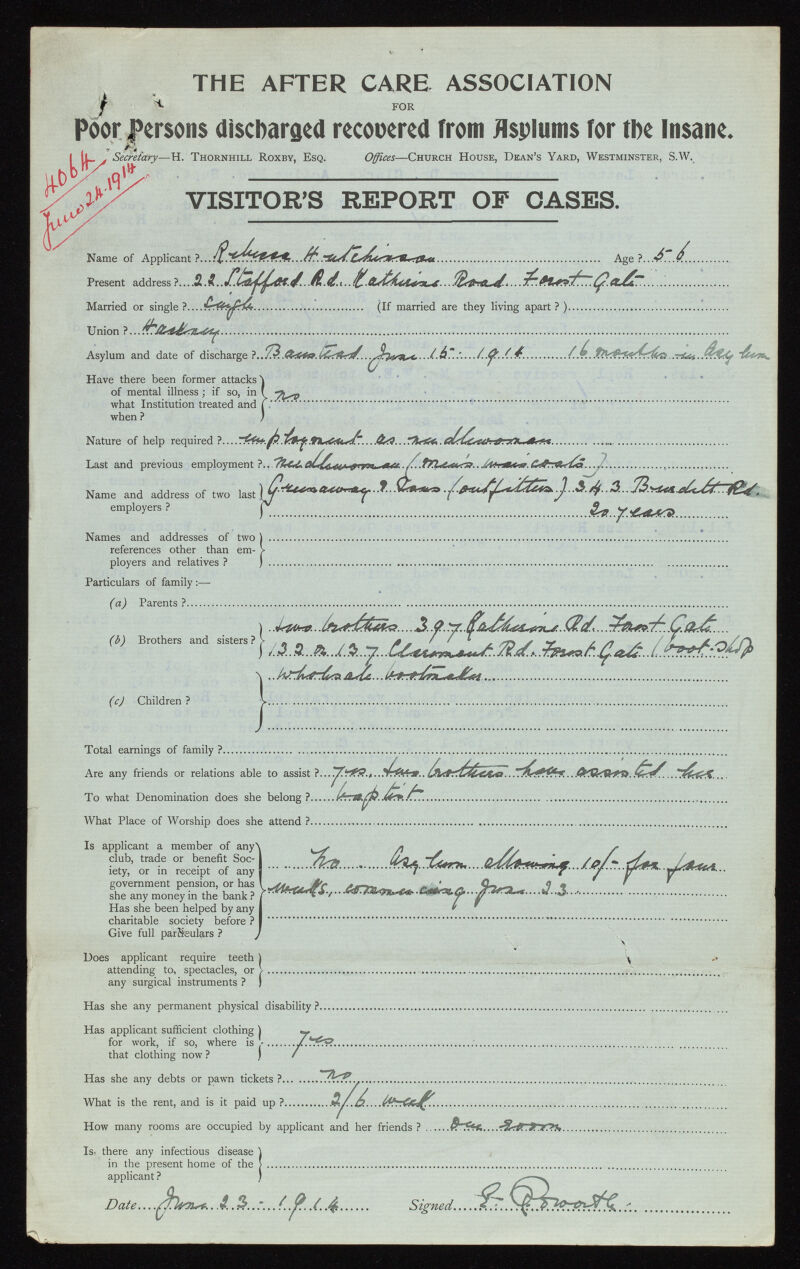 THE AFTER CARE ASSOCIATION
FOR
Poor Persons discharged recovered from Asylums for the Insane.
Secretary—H. THORNHILL ROXBY, ESQ. Offices—CHURCH HOUSE, DEAN'S YARD, WESTMINSTER, S.W.
4064
June 24. 1914
VISITOR'S REPORT OF CASES.
Name of Applicant? Rebecca Hutchinson Age? 56
Present address? 22 Stafford Rd. Katherine Road Forest Gate
Married or single? Single (If married are they living apart?)
Union? Hackney
Asylum and date of discharge? Banstead June 15. 1914 16 months in Asylum
Have there been former attacks
of mental illness; if so, in
what Institution treated and
when? no
Nature of help required? employment as needlewoman
Last and previous employment? needlewoman (men's waiscoats)
Name and address of two last Greenaway & Sons (outfitters) 343 Burdett Rd.
employers? 20 years
Names and addresses of two
references other than em-
ployers and relatives?
Particulars of family:—
(a) Parents?
(b) Brothers and sisters? two brothers 397 Katherine Rd. Forest Gate
132 or 137 Claremont Rd. Forest Gate (boot-shop
wholesale bootmaker
(c) Children?
Total earnings of family?
Are any friends or relations able to assist? yes, two brothers have assisted her
To what Denomination does she belong? baptist
What Place of Worship does she attend?
Is applicant a member of any
club, trade or benefit Soc-
iety, or in receipt of any No. Asylum allowing 10/- for four
government pension, or has
she any money in the bank? weeks, commencing June 23
Has she been helped by any
charitable society before?
Give full particulars?
Does applicant require teeth
attending to, spectacles, or
any surgical instruments?
Has she any permanent physical disability?
Has applicant sufficient clothing
for work, if so, where is yes
that clothing now?
Has she any debts or pawn tickets? no
What is the rent, and is it paid up? 2/6 week
How many rooms are occupied by applicant and her friends? One room
Is there any infectious disease
in the present home of the
applicant?
Date June 23 - 1914 Signed E.